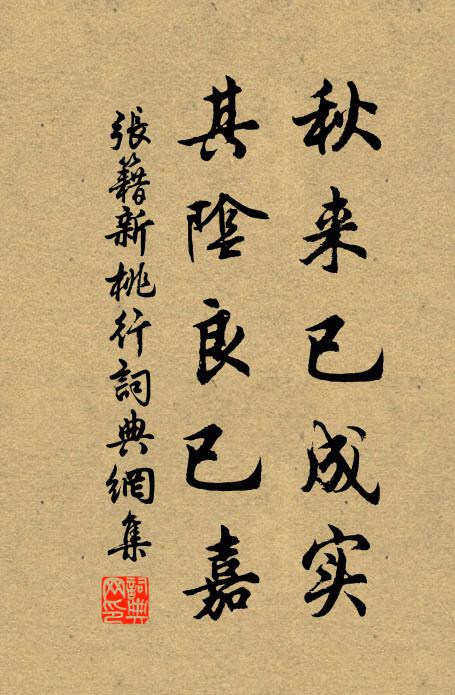 秋来已成实
其陰良已嘉
張籍新桃行詞典網集
詞典网印